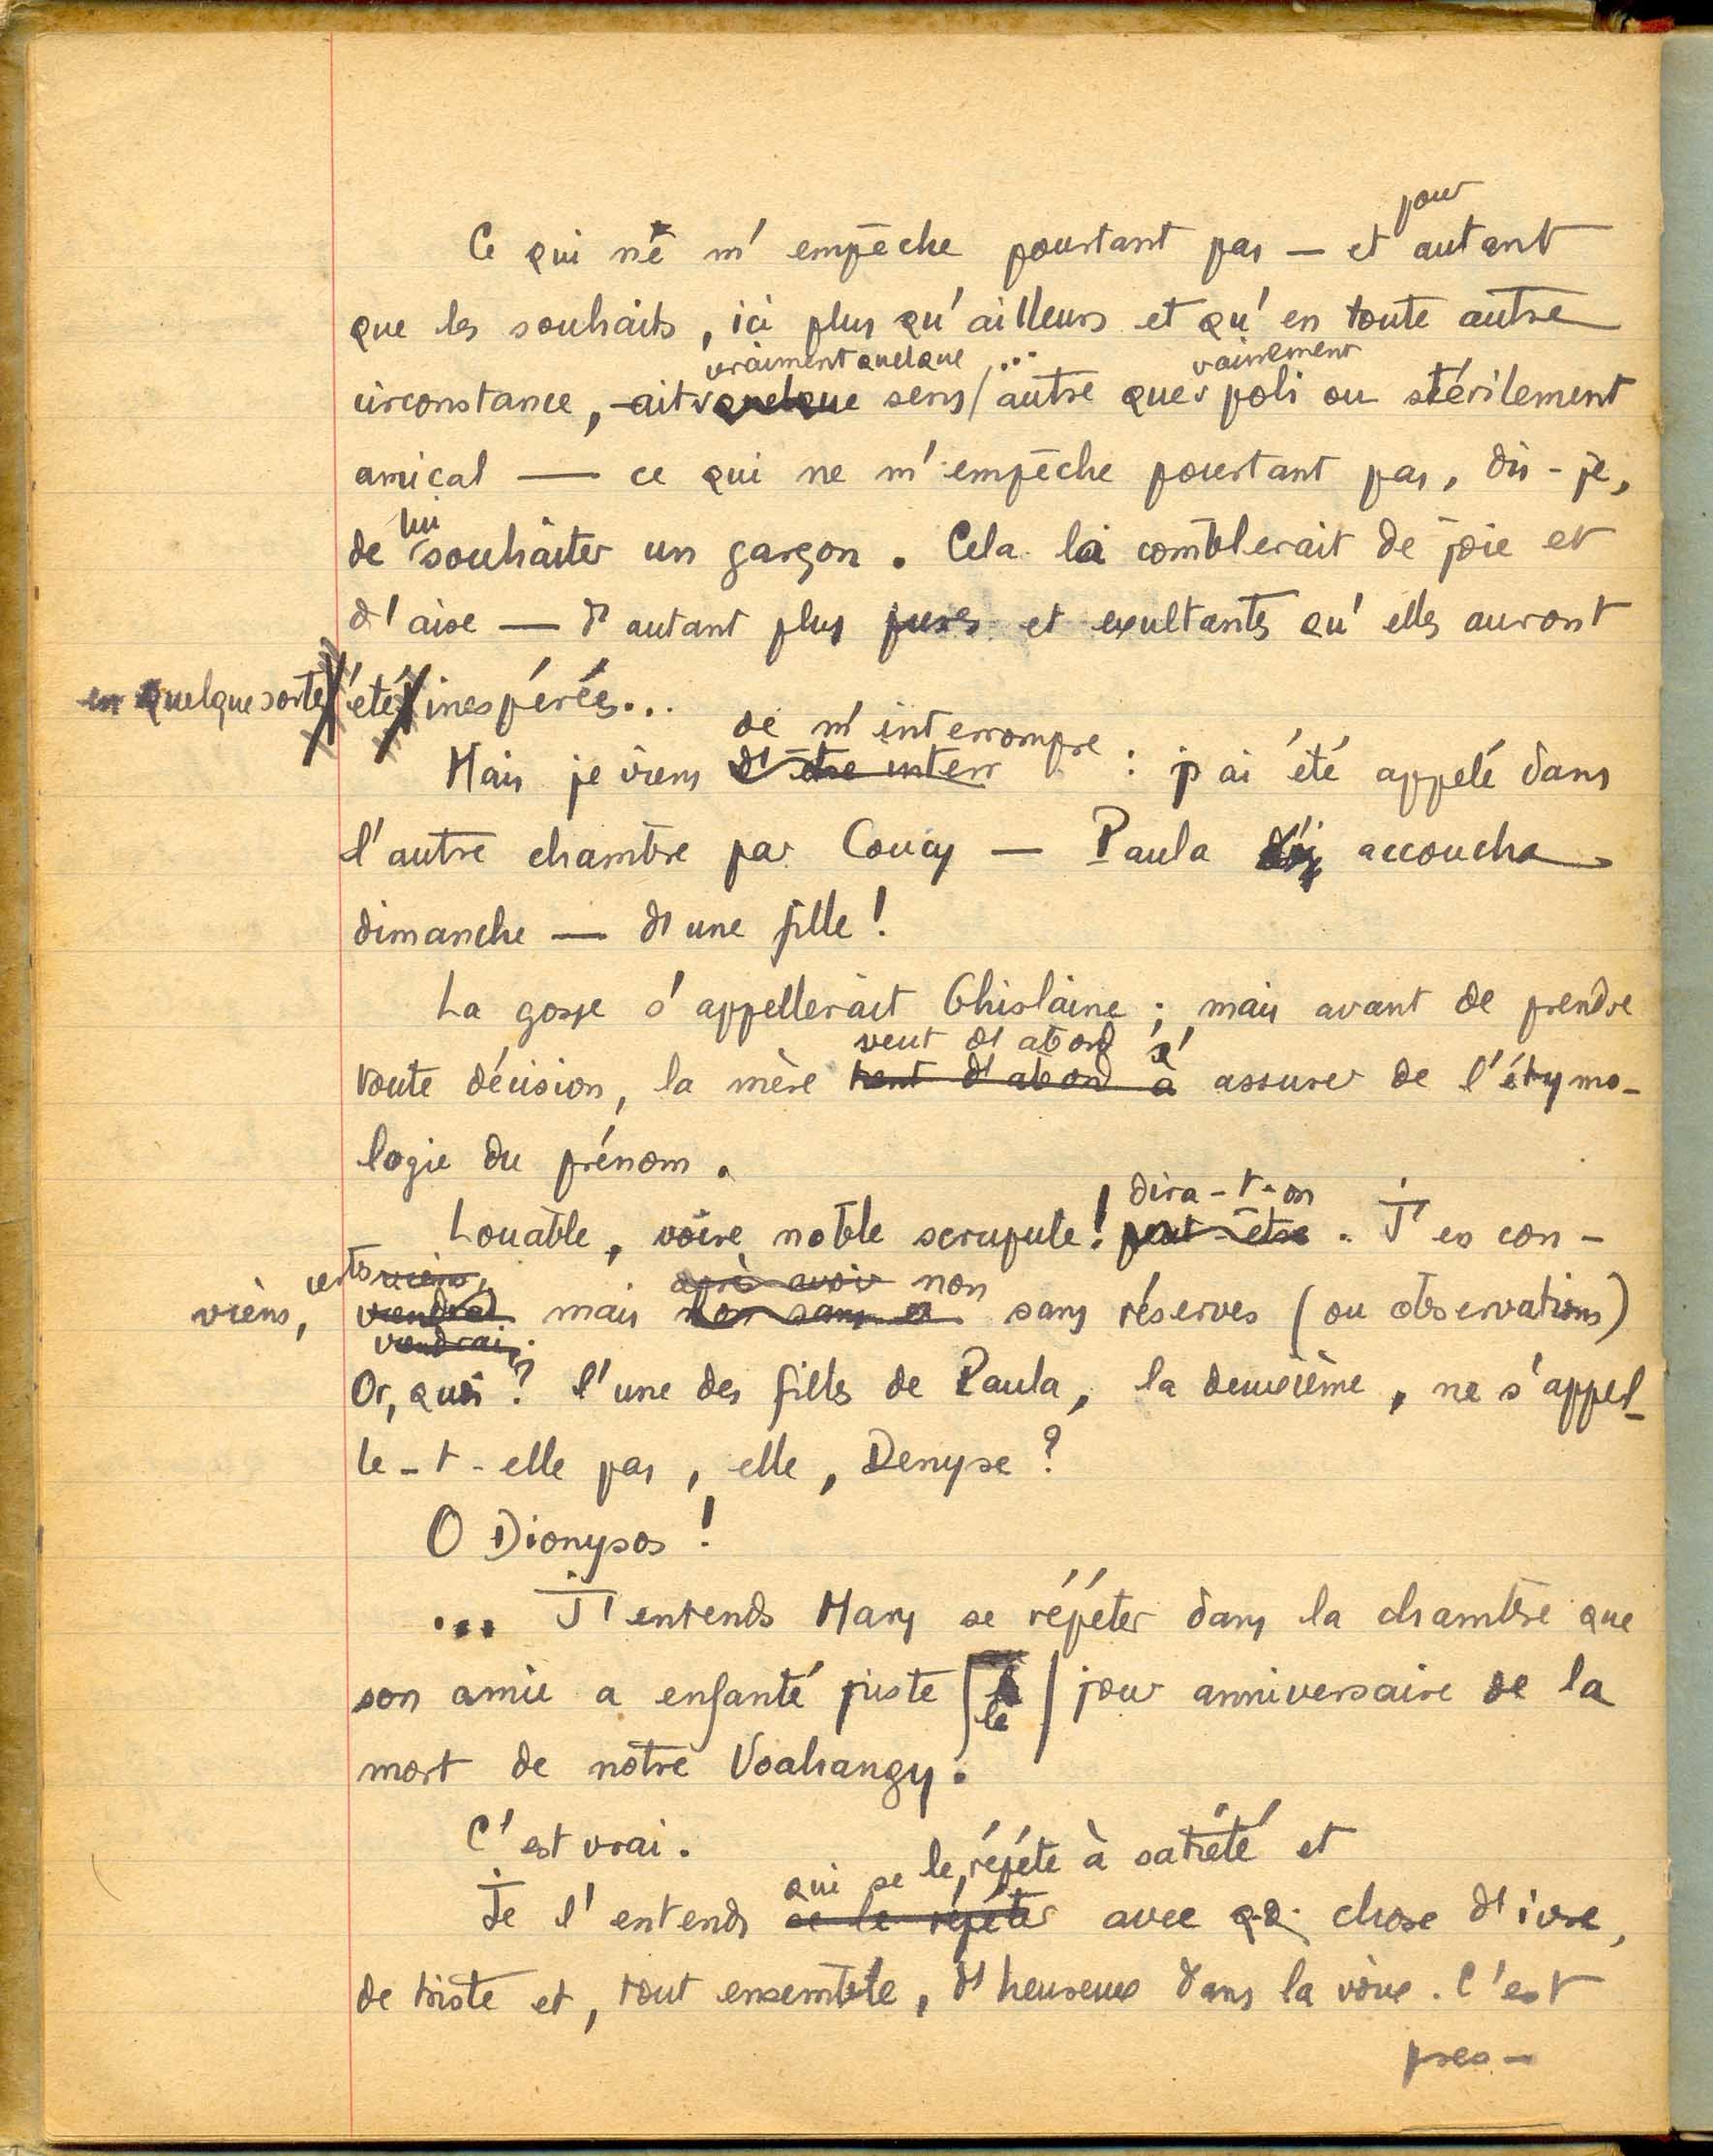 pour
Ce qui ne m'empêche pourtant pas — et autant
que les souhaits, ici plus qu'ailleurs et qu'en toute autre
vraiment quelque ... vainement
circonstance, – ait quelque sens / autre que poli ou stérilement
amical — ce qui ne m'empêche pourtant pas, dis-je,
lui
de souhaiter un garçon. Cela la comblerait de joie et
d'aise — d'autant plus pures et exultantes qu'elles auront
en quelque sorte été inespérées...
de m'interrompre
Mais je viens d'être interr : j'ai été appelé dans
l'autre chambre par Coucy — Paula accoucha
dimanche — d'une fille !
La gosse s'appellerait Ghislaine ; mais avant de prendre
veut d'abord s'
toute décision, la mère tient d'abord à assurer de l'étymo-
logie du prénom.
dira-t-on
Louable, voire noble scrupule ! peut-être. J'en con-
certes viens, après avoir non
viens, viendrai mais non sans en sans réserves (ou observations)
viendrai.
Or, quoi ? l'une des filles de Paula, la deuxième, ne s'appel-
le-t-elle pas, elle, Denyse ?
O Dionysos !
... J'entends Mary se répéter dans la chambre que
son amie a enfanté juste jour anniversaire de la
le
mort de notre Voahangy.
C'est vrai.
qui se le répète à satiété et
Je l'entends se le répéter avec qq. chose d'ivre,
de triste et, tout ensemble, d'heureux dans la voix. C'est
pres-